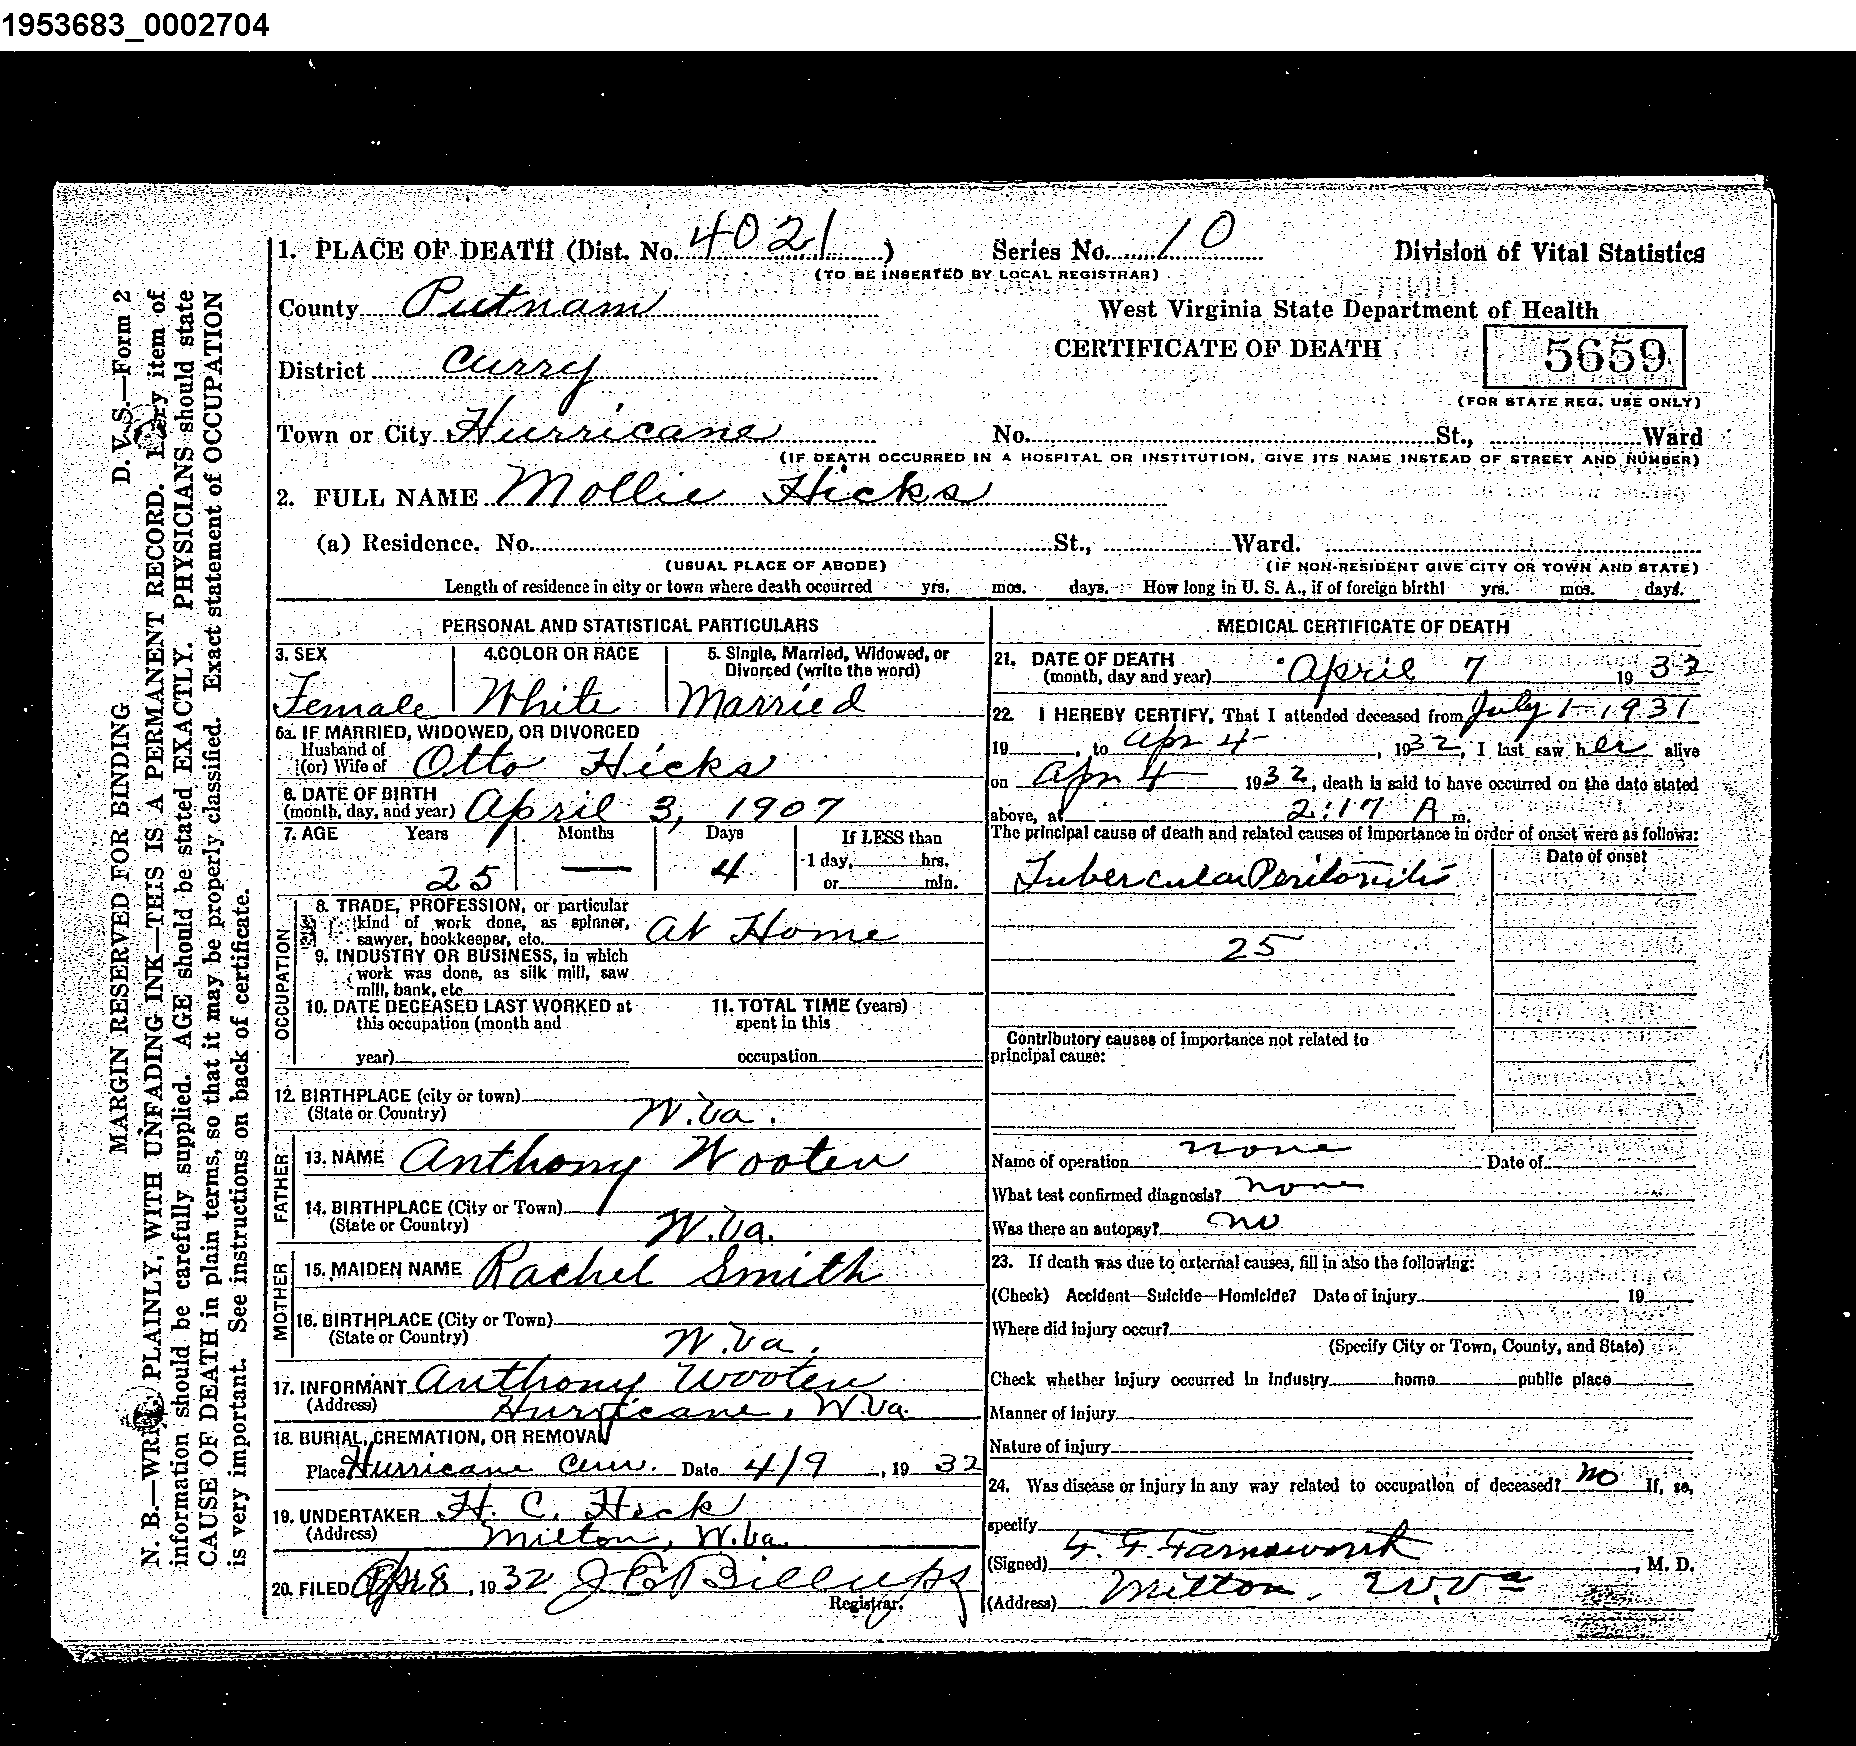 1953683_0002704
1. PLACE OF DEATH (Dist. No. 4021 ) Series No. 10 Division of Vital Statistics
(TO BE INSERTED BY LOCAL REGISTRAR)
County Putnam West Virginia State Department of Health
District Curry CERTIFICATE OF DEATH 5659
(FOR STATE REG. USE ONLY)
Town or City Hurricane No. St., Ward
(IF DEATH OCCURRED IN A HOSPITAL OR INSTITUTION, GIVE ITS NAME INSTEAD OF STREET AND NUMBER)
2. FULL NAME Mollie Hicks
(a) Residence. No. St., Ward.
(USUAL PLACE OF ABODE) (IF NON-RESIDENT GIVE CITY OR TOWN AND STATE)
Length of residence in city or town where death occurred yrs. mos. days. How long in U. S. A., if of foreign birth! yrs. mos. days.
PERSONAL AND STATISTICAL PARTICULARS
3. SEX 4. COLOR OR RACE 5. Single, Married, Widowed, or
Divorced (write the word)
Female White Married
6a. IF MARRIED, WIDOWED, OR DIVORCED
Husband of
(or) Wife of Otto Hicks
6. DATE OF BIRTH
(month, day, and year) April 3, 1907
7. AGE Years Months Days If LESS than
1 day, hrs.
25 — 4 or min.
OCCUPATION
8. TRADE, PROFESSION, or particular
kind of work done, as spinner,
sawyer, bookkeeper, etc. At Home
9. INDUSTRY OR BUSINESS, in which
work was done, as silk mill, saw
mill, bank, etc.
10. DATE DECEASED LAST WORKED at 11. TOTAL TIME (years)
this occupation (month and spent in this
year) occupation
12. BIRTHPLACE (city or town)
(State or Country) W.Va.
FATHER
13. NAME Anthony Wooten
14. BIRTHPLACE (City or Town)
(State or Country) W.Va.
MOTHER
15. MAIDEN NAME Rachel Smith
16. BIRTHPLACE (City or Town)
(State or Country) W.Va.
17. INFORMANT Anthony Wooten
(Address) Hurricane, W.Va.
18. BURIAL, CREMATION, OR REMOVAL
Place Hurricane Cem. Date 4/9, 1932
19. UNDERTAKER H. C. Heck
(Address) Milton, W.Va.
20. FILED Apr 8, 1932 J E Billups
Registrar.
MEDICAL CERTIFICATE OF DEATH
21. DATE OF DEATH
(month, day and year) April 7 1932
22. I HEREBY CERTIFY, That I attended deceased from July 1-1931
19 , to Apr 4 , 1932, I last saw her alive
on Apr 4 1932, death is said to have occurred on the date stated
above, at 2:17 A m.
The principal cause of death and related causes of importance in order of onset were as follows:
Date of onset
Tubercular Peritonitis
25
Contributory causes of importance not related to
principal cause:
Name of operation none Date of
What test confirmed diagnosis? none
Was there an autopsy? no
23. If death was due to external causes, fill in also the following:
(Check) Accident—Suicide—Homicide? Date of injury 19
Where did injury occur?
(Specify City or Town, County, and State)
Check whether injury occurred in industry home public place
Manner of injury
Nature of injury
24. Was disease or injury in any way related to occupation of deceased? no If, so,
specify
(Signed) F. F. Farnsworth, M. D.
(Address) Milton, W.Va
D. V. S.—Form 2
MARGIN RESERVED FOR BINDING
N. B.—WRITE PLAINLY, WITH UNFADING INK—THIS IS A PERMANENT RECORD. Every item of
information should be carefully supplied. AGE should be stated EXACTLY. PHYSICIANS should state
CAUSE OF DEATH in plain terms, so that it may be properly classified. Exact statement of OCCUPATION
is very important. See instructions on back of certificate.